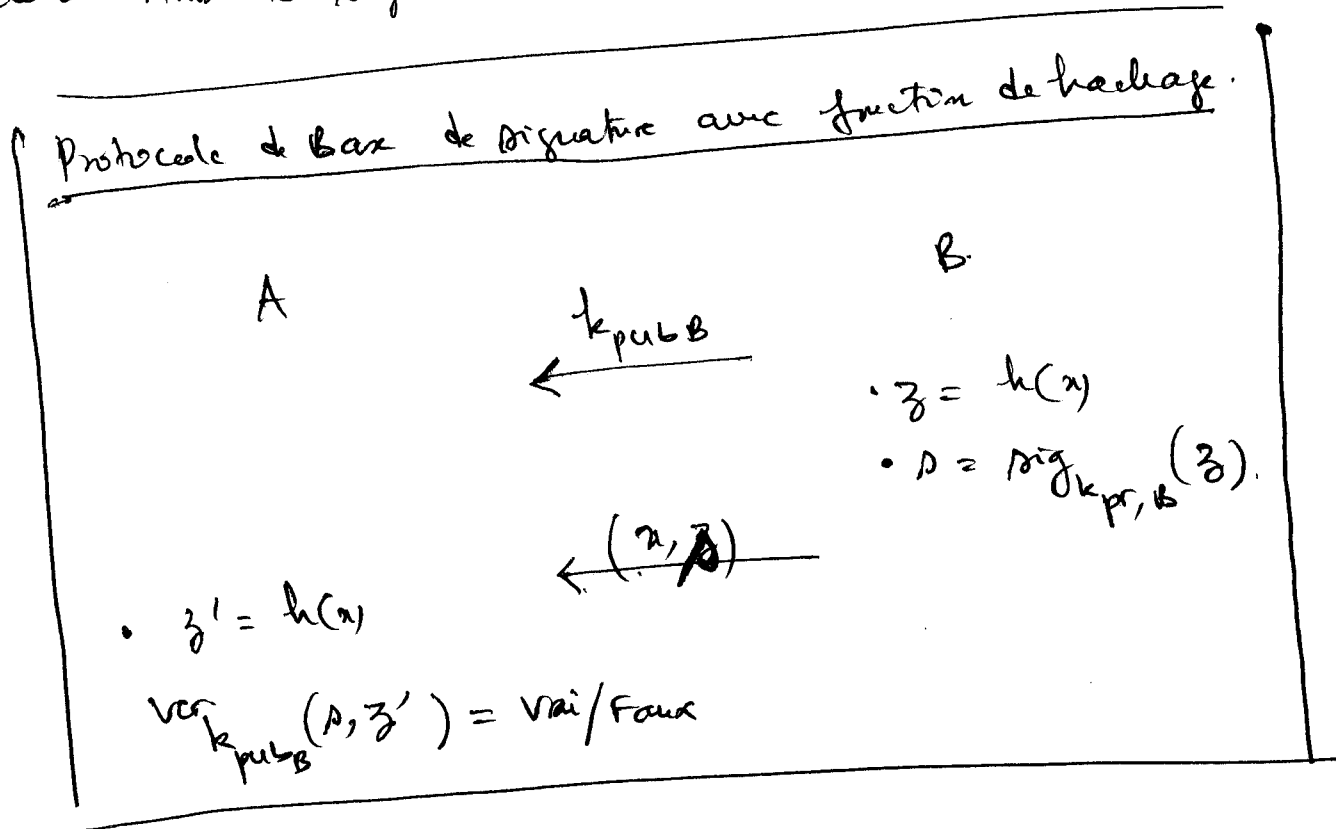 Protocole de Base de signature avec fonction de hachage.
A
B.
k_pubB
• z = h(x)
• s = sig_k_pr,B (z).
(x, s)
• z' = h(x)
ver_k_pubB (s, z') = Vrai/Faux